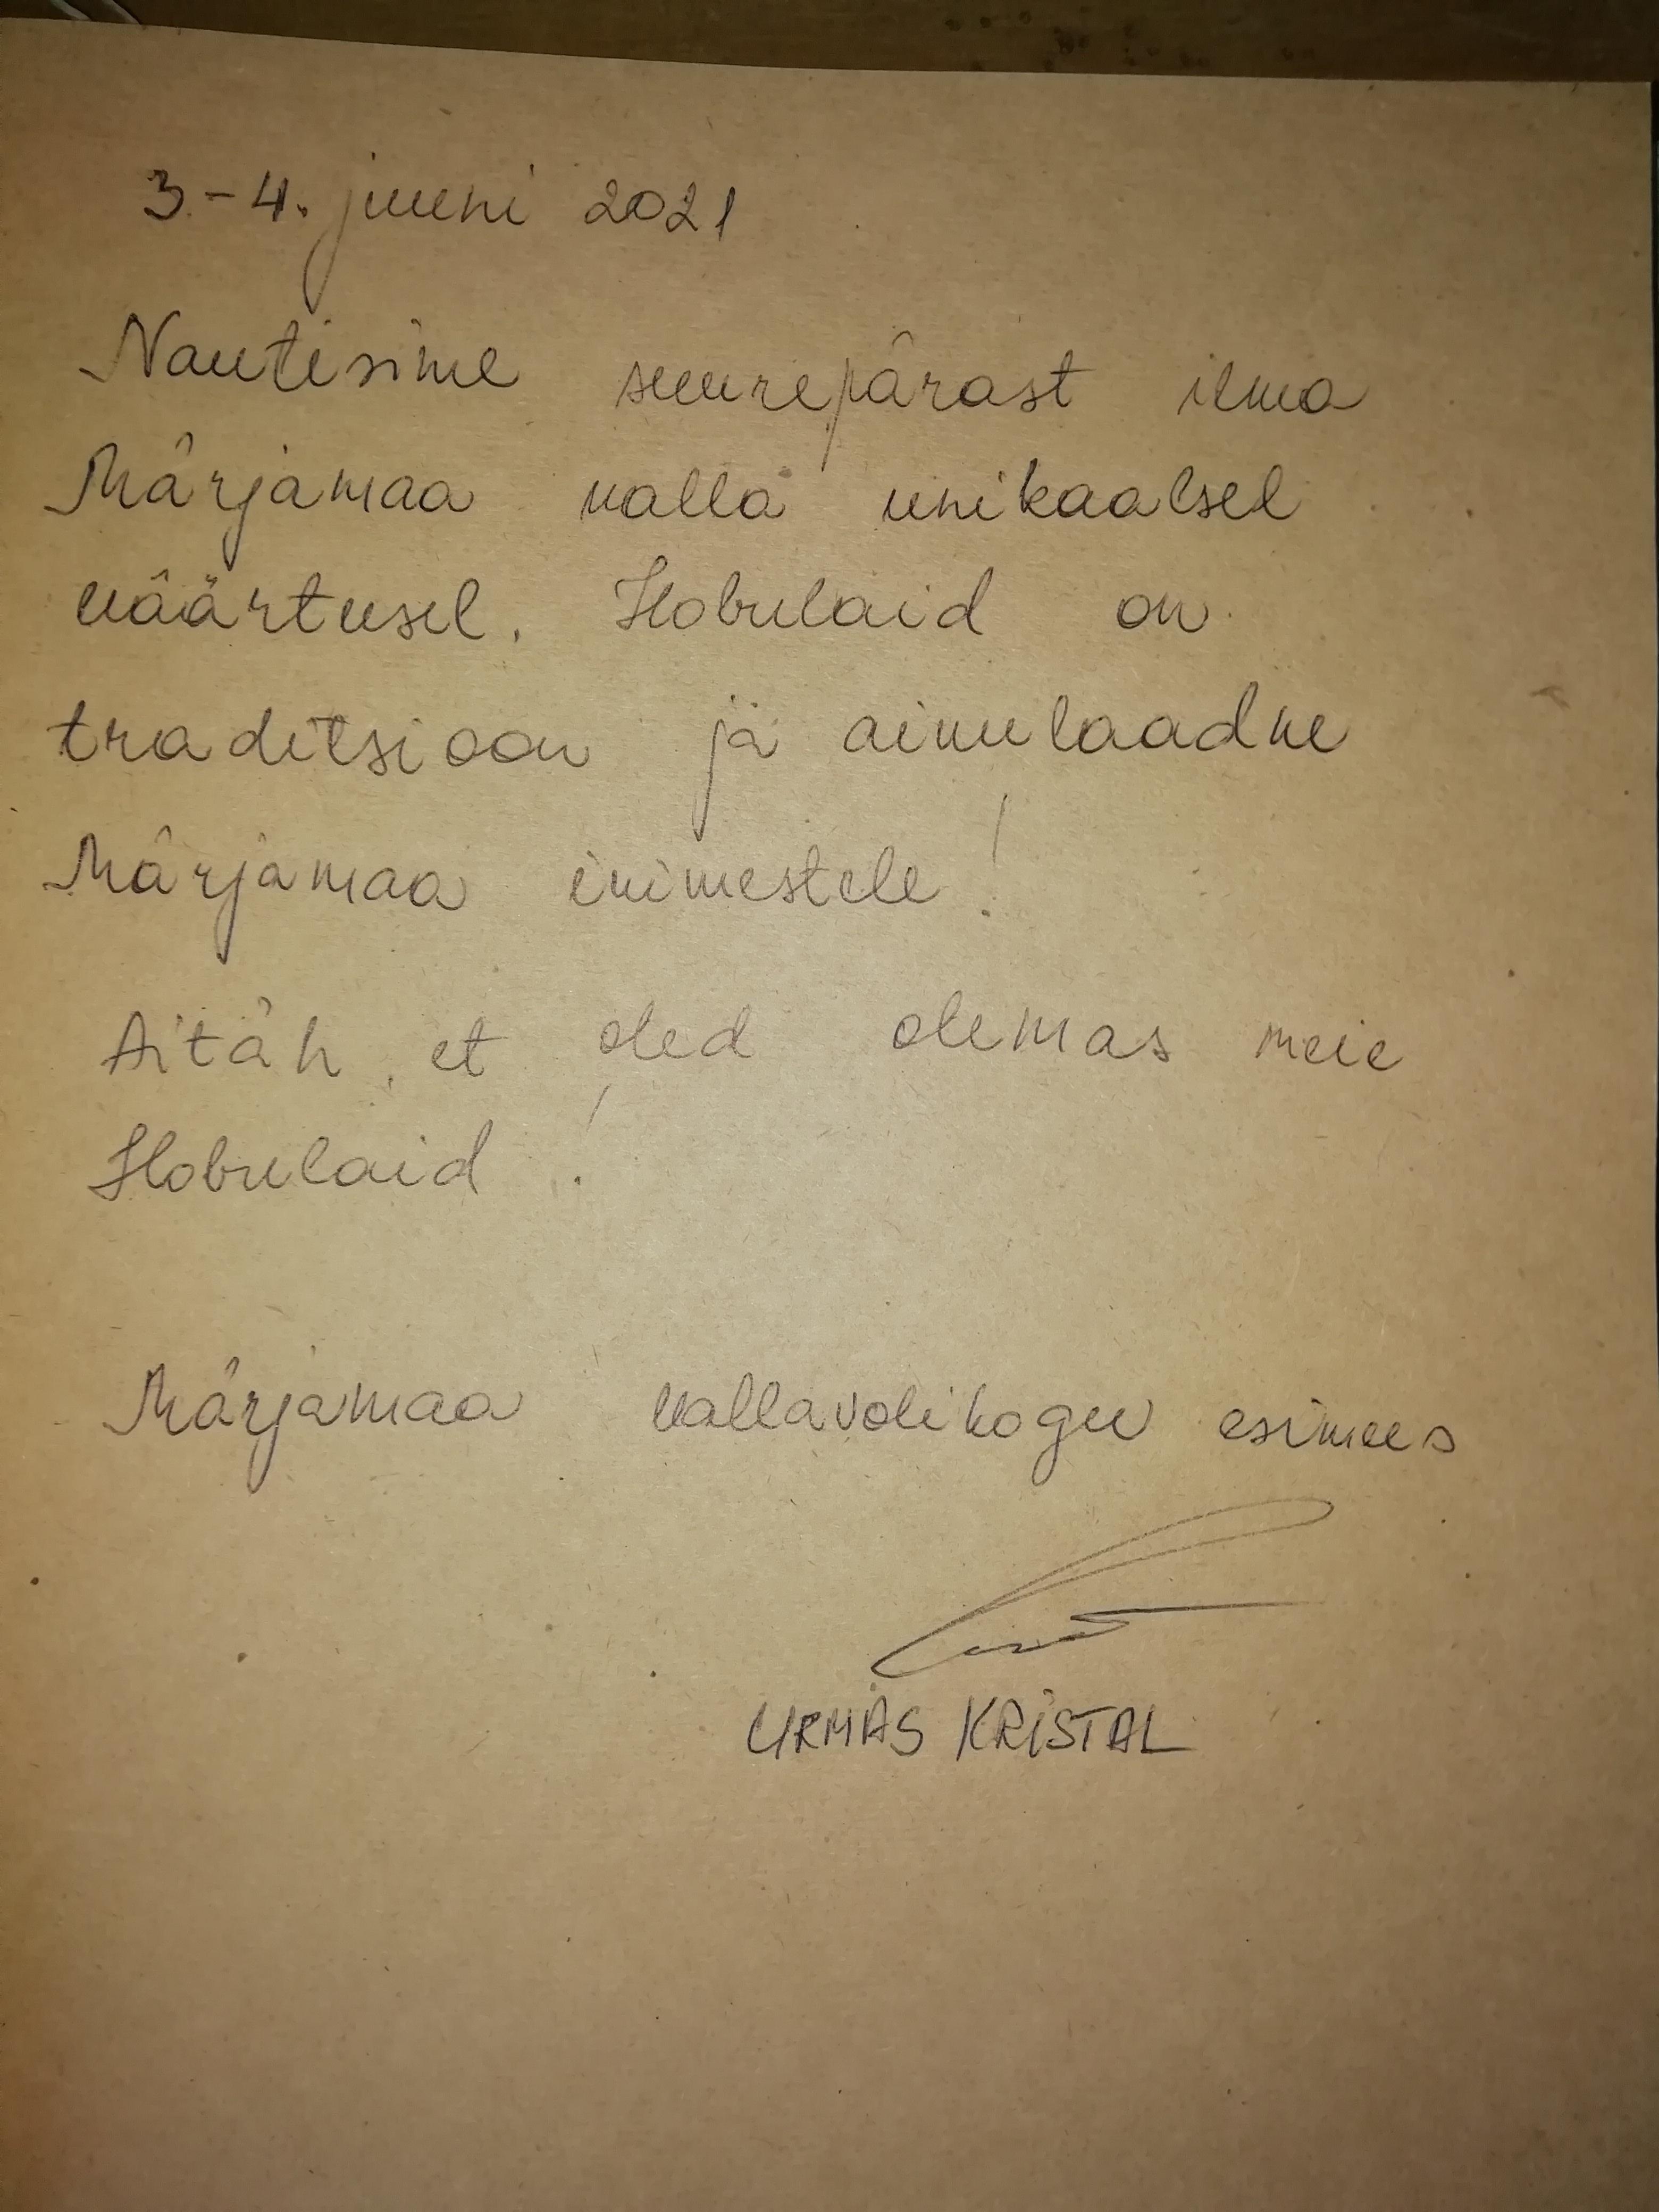 3.-4. juuni 2021
Nautisime suurepärast ilma
Märjamaa valla unikaalsel
väärtusel. Hobulaid on
traditsioon ja ainulaadne
Märjamaa inimestele!
Aitäh, et oled olemas meie
Hobulaid!
Märjamaa vallavolikogu esimees
URMAS KRISTAL